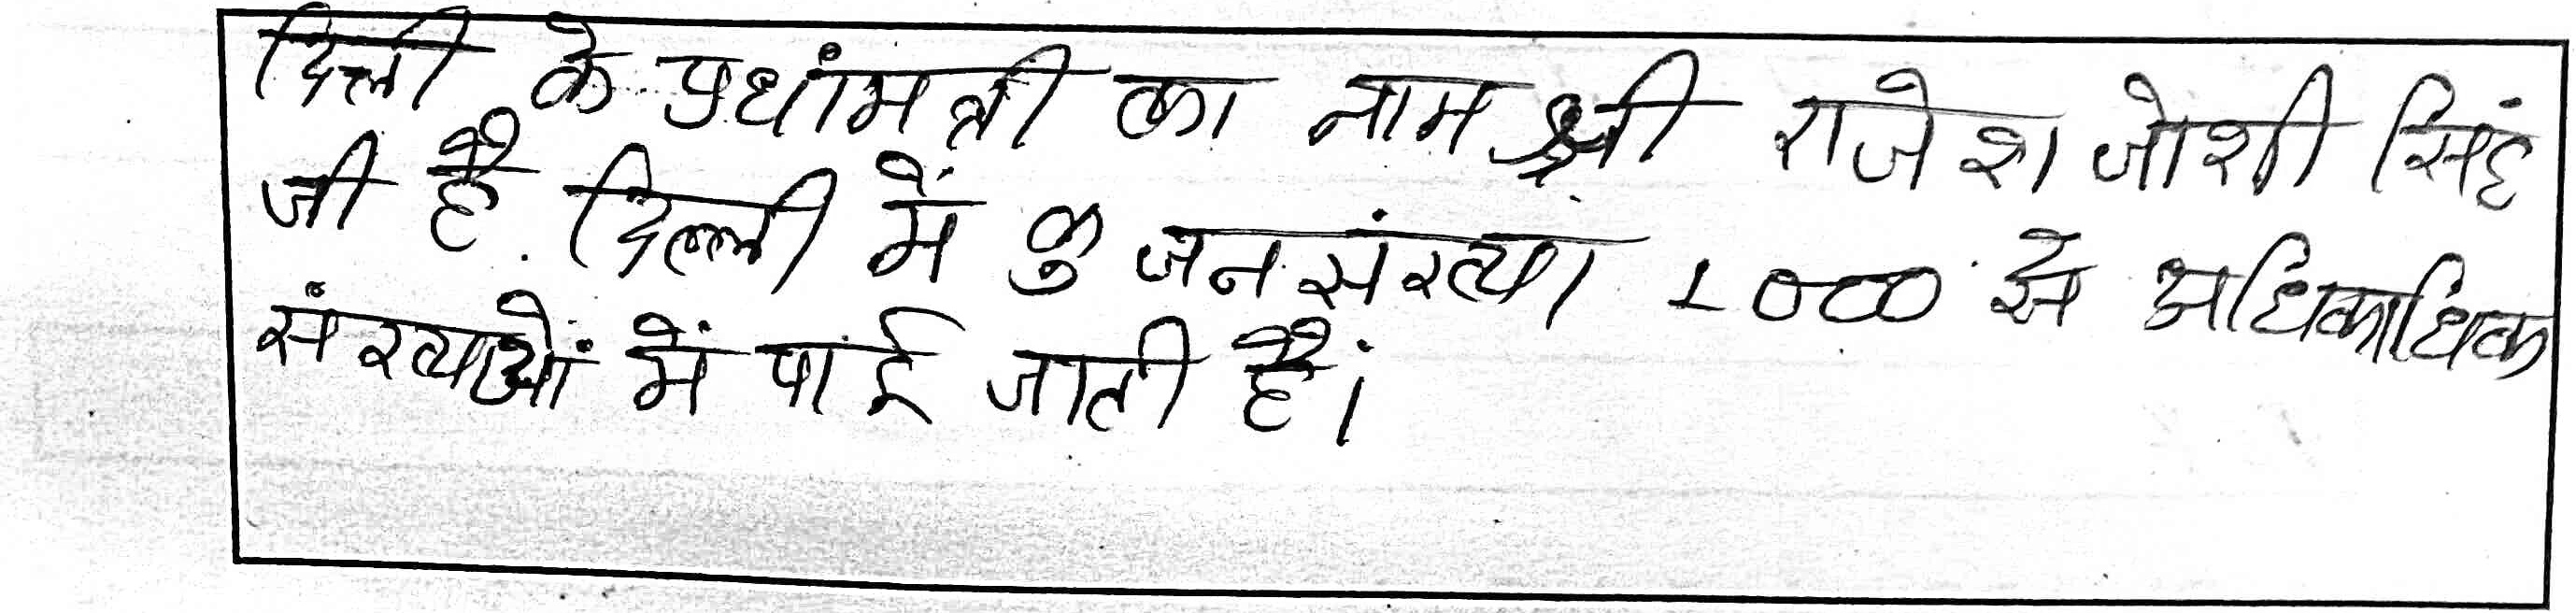 दिल्ली के प्रधांमत्री का नाम श्री राजेश जोशी सिंह
जी है दिल्ली में कु जनसंख्या 1000 से अधिकाधिक
संख्याओं में पाई जाती है।